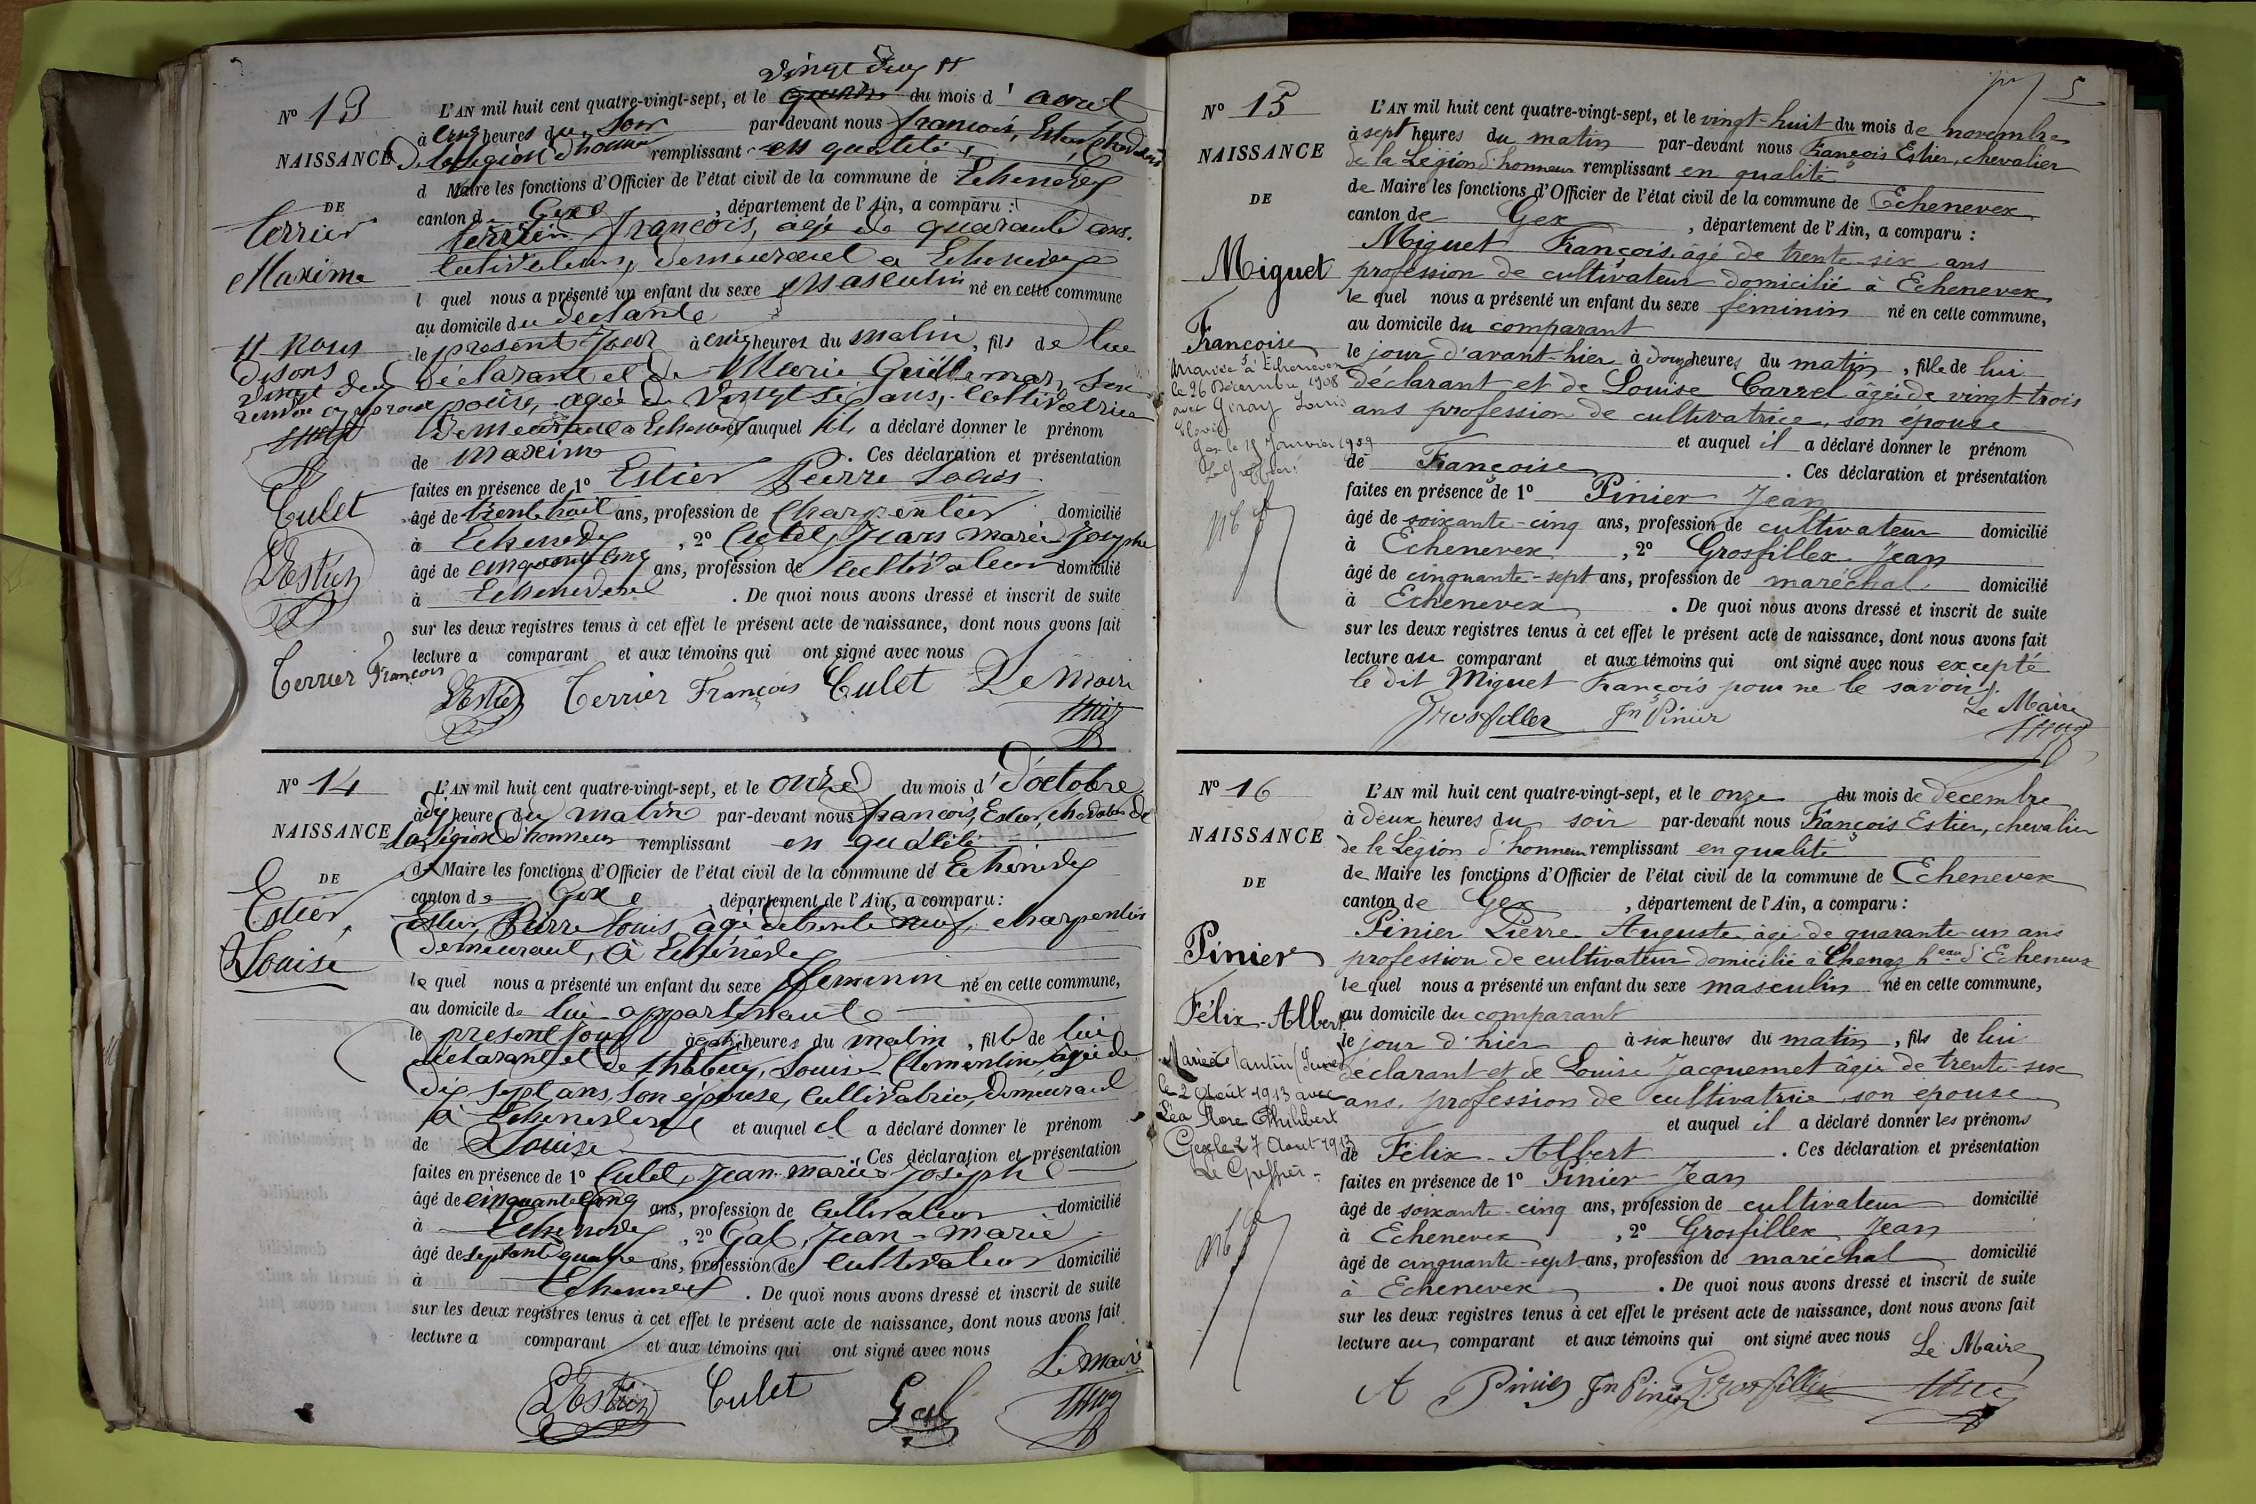 vingt deux
Nº 13
L'AN mil huit cent quatre-vingt-sept, et le du mois d'
à cinq heures du Soir par-devant nous francois, Estier,
NAISSANCE
remplissant en qualité
d Maire les fonctions d'Officier de l'état civil de la commune de Echenevex
DE
canton de Gex, département de l'Ain, a comparu :
Terrier
terrier françois, agé de quarante ans.
Maxime
cultivateur, demeurant a Echenevex
l quel nous a présenté un enfant du sexe Masculin né en cette commune
au domicile du
le présent jour à cinq heures du matin, fils de lui
nous
disons
vingt deux
déclarant et de Marie Guillemar, Son
agée de vingt six ans, cultivatrice
demeurant a Echenevex et auquel il a déclaré donner le prénom
de Maxime . Ces déclaration et présentation
faites en présence de 1º Estier Pierre Louis
Culet
âgé de trente huit ans, profession de Charpentier domicilié
à Echenevex, 2º Culet, Jean marie Josephe
âgé de cinquante cinq ans, profession de cultivateur domicilié
LEstier
à Echenevex . De quoi nous avons dressé et inscrit de suite
sur les deux registres tenus à cet effet le présent acte de naissance, dont nous avons fait
lecture a comparant et aux témoins qui ont signé avec nous
Terrier François
LEstier Terrier François Culet Le Maire
Nº 14
L'AN mil huit cent quatre-vingt-sept, et le onze du mois d' d'octobre
à dix heure du matin par-devant nous francois, Estier, chevalier de
NAISSANCE
la légion d'honneur remplissant en qualité
de Maire les fonctions d'Officier de l'état civil de la commune de Echenevex
DE
canton de Gex, département de l'Ain, a comparu :
Estier,
Estier, Pierre Louis âgé de trente neuf, charpentier
demeurant, à Echenevex
Louise
le quel nous a présenté un enfant du sexe feminin né en cette commune,
au domicile de lui appartenant
le présent jour à heures du matin, fille de lui
déclarant et de Louise Clementine âgée de
dix sept ans, son épouse, cultivatrice, demeurant
à Echenevex et auquel il a déclaré donner le prénom
de Louise . Ces déclaration et présentation
faites en présence de 1º Culet, Jean-marie Joseph
âgé de cinquante cinq ans, profession de cultivateur domicilié
à Echenevex, 2º Gal, Jean-marie
âgé de septante quatre ans, profession de cultivateur domicilié
à Echenevex . De quoi nous avons dressé et inscrit de suite
sur les deux registres tenus à cet effet le présent acte de naissance, dont nous avons fait
lecture a comparant et aux témoins qui ont signé avec nous
Le Maire
LEstier Culet Gal
5
Nº 15
L'AN mil huit cent quatre-vingt-sept, et le vingt-huit du mois de novembre
à sept heures du matin par-devant nous François Estier, chevalier
NAISSANCE
de la Légion d'honneur remplissant en qualité
de Maire les fonctions d'Officier de l'état civil de la commune de Echenevex
DE
canton de Gex, département de l'Ain, a comparu :
Miguet François, âgé de trente-six ans
Miguet
profession de cultivateur domicilié à Echenevex
le quel nous a présenté un enfant du sexe féminin né en cette commune,
au domicile du comparant
Françoise
le jour d'avant-hier à douze heures du matin, fille de lui
Mariée à Echenevex
le 26 Décembre 1908
avec Giray Louis
déclarant et de Louise Carrel âgée de vingt-trois
ans profession de cultivatrice, son épouse
Gex le 15 Janvier 1909
Le Greffier
et auquel il a déclaré donner le prénom
de Françoise . Ces déclaration et présentation
faites en présence de 1º Pinier Jean
âgé de soixante-cinq ans, profession de cultivateur domicilié
à Echenevex, 2º Grosfillex Jean
âgé de cinquante-sept ans, profession de maréchal domicilié
à Echenevex . De quoi nous avons dressé et inscrit de suite
sur les deux registres tenus à cet effet le présent acte de naissance, dont nous avons fait
lecture au comparant et aux témoins qui ont signé avec nous excepté
le dit Miguet François pour ne le savoir.
Le Maire
Grosfillex Jn Pinier
Nº 16
L'AN mil huit cent quatre-vingt-sept, et le onze du mois de decembre
à deux heures du soir par-devant nous François Estier, chevalier
NAISSANCE
de la Légion d'honneur remplissant en qualité
de Maire les fonctions d'Officier de l'état civil de la commune de Echenevex
DE
canton de Gex, département de l'Ain, a comparu :
Pinier Pierre Auguste âgé de quarante-un ans
Pinier
profession de cultivateur domicilié à Chenaz heau d'Echenevex
le quel nous a présenté un enfant du sexe masculin né en cette commune,
Félix-Albert
au domicile du comparant
le jour d'hier à six heures du matin, fils de lui
Marié à Pantin (Seine)
le 2 Août 1913 avec
Léa Flore Philibert
Gex le 27 Aout 1913
Le Greffier
déclarant et de Louise Jacquemet âgée de trente-six
ans, profession de cultivatrice son épouse
et auquel il a déclaré donner les prénoms
de Félix-Albert . Ces déclaration et présentation
faites en présence de 1º Pinier Jean
âgé de soixante-cinq ans, profession de cultivateur domicilié
à Echenevex, 2º Grosfillex Jean
âgé de cinquante-sept ans, profession de maréchal domicilié
à Echenevex . De quoi nous avons dressé et inscrit de suite
sur les deux registres tenus à cet effet le présent acte de naissance, dont nous avons fait
lecture au comparant et aux témoins qui ont signé avec nous
Le Maire
A Pinier Jn Pinier Grosfillex